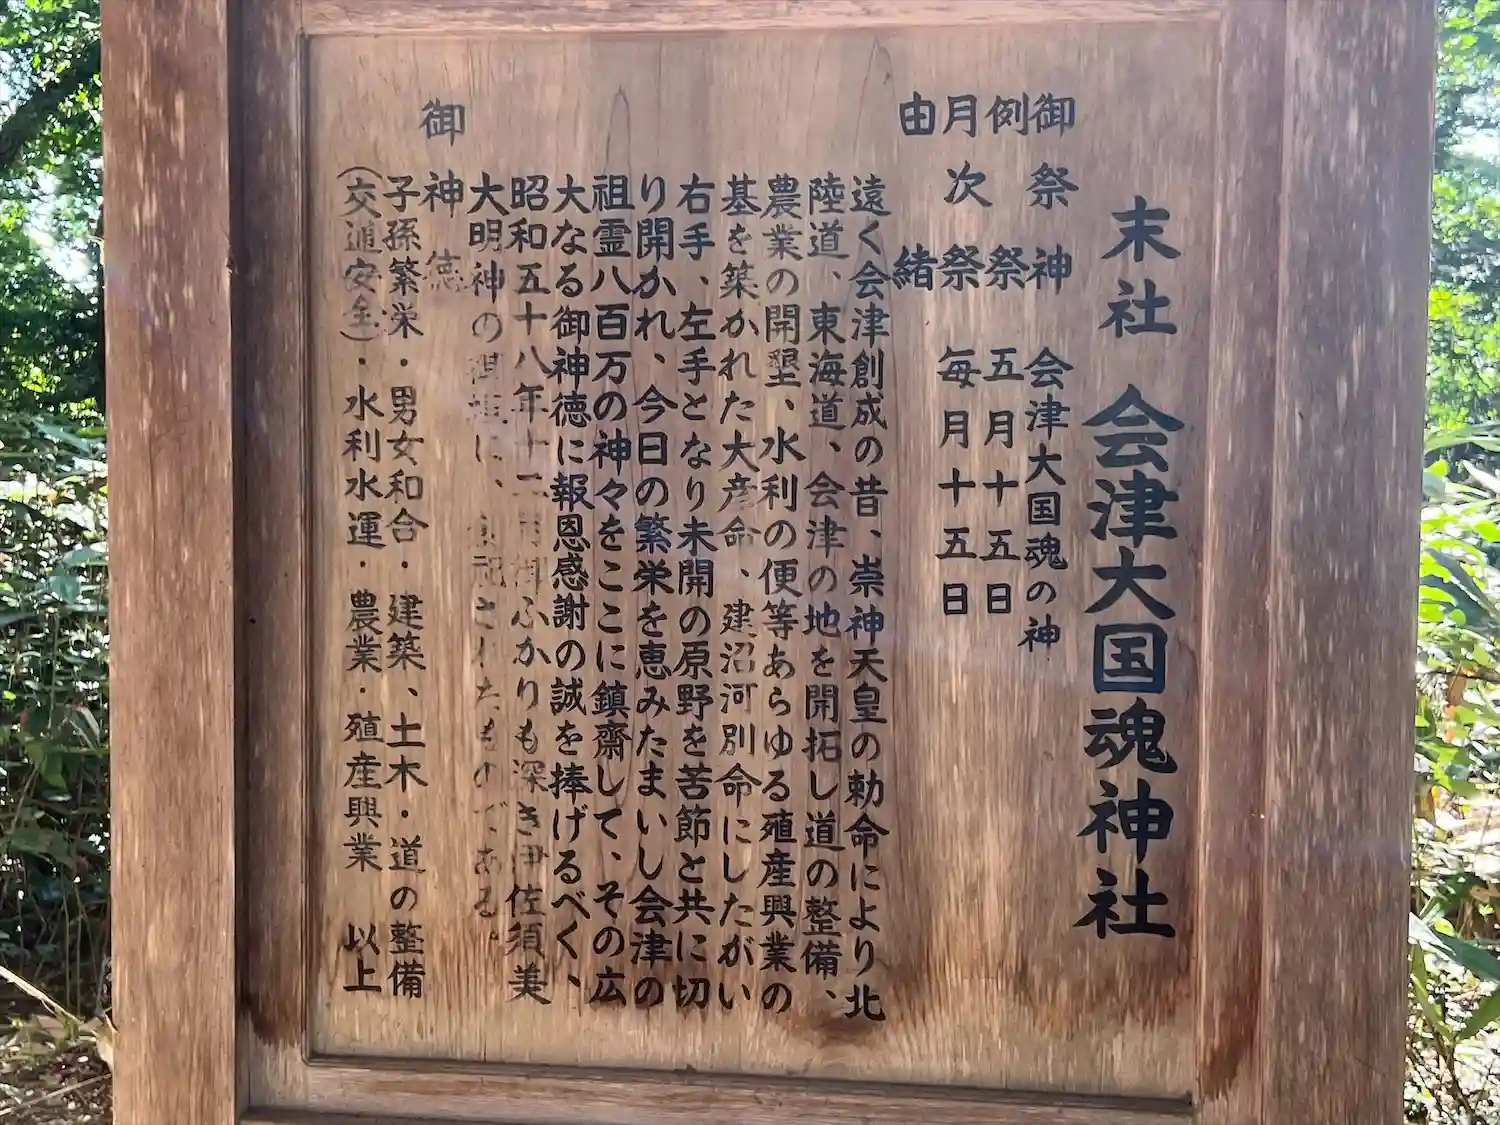 末社 会津大国魂神社
御祭神 会津大国魂の神
例祭 五月十五日
月次祭 毎月十五日
由緒
遠く会津創成の昔、崇神天皇の勅命により北
陸道、東海道、会津の地を開拓し道の整備、
農業の開墾、水利の便等あらゆる殖産興業の
基を築かれた大彦命、建沼河別命にしたがい
右手、左手となり未開の原野を苦節と共に切
り開かれ、今日の繁栄を恵みたまいし会津の
祖霊八百万の神々をここに鎮齋して、その広
大なる御神徳に報恩感謝の誠を捧げるべく、
昭和五十八年十二月御ふかりも深き伊佐須美
大明神の に、 祀されたものである。
御神徳
子孫繁栄・男女和合・建築、土木・道の整備
(交通安全)・水利水運・農業・殖産興業 以上